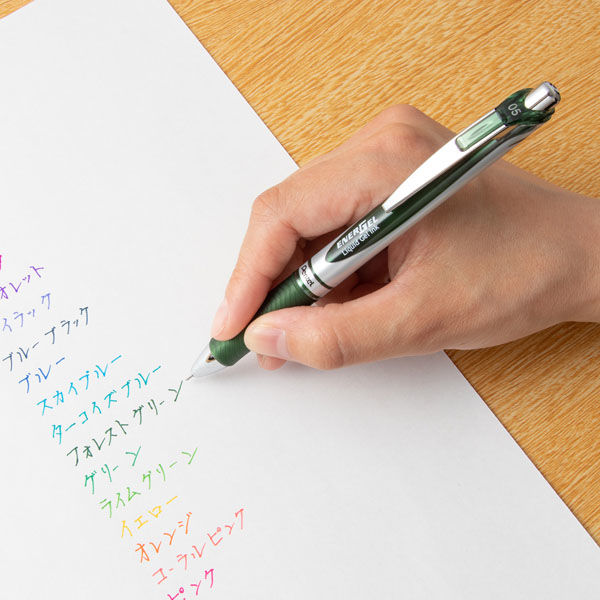 オレット
イラック
ブルーブラック
ブルー
スカイブルー
ターコイズブルー
フォレストグリーン
グリーン
ライムグリーン
イエロー
オレンジ
コーラルピンク
ピンク
05
ENERGEL
Liquid Gel Ink
Pentel